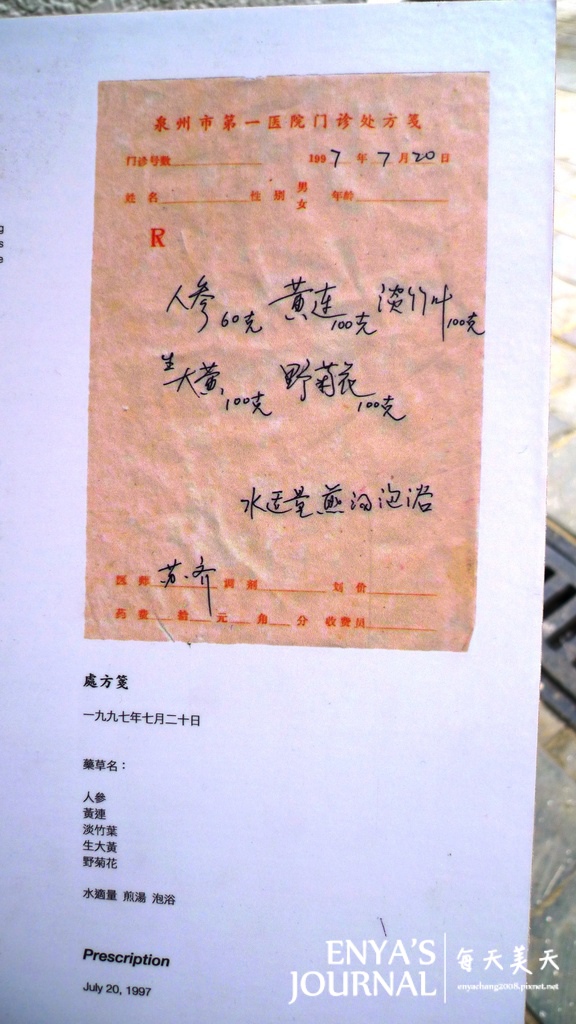 g
s
e
泉州市第一医院门诊处方笺
门诊号数 1997年7月20日
姓名 性别 男女 年龄
R
人參60克 黄连100克 淡竹叶100克
生大黄100克 野菊花100克
水适量煎汤泡浴
医师 苏·齐 调剂 划价
药费 拾 元 角 分 收费员
處方箋
一九九七年七月二十日
藥草名：
人參
黃連
淡竹葉
生大黃
野菊花
水適量 煎湯 泡浴
Prescription
July 20, 1997
ENYA'S JOURNAL
每天美天
enyachang2008.pixnet.net